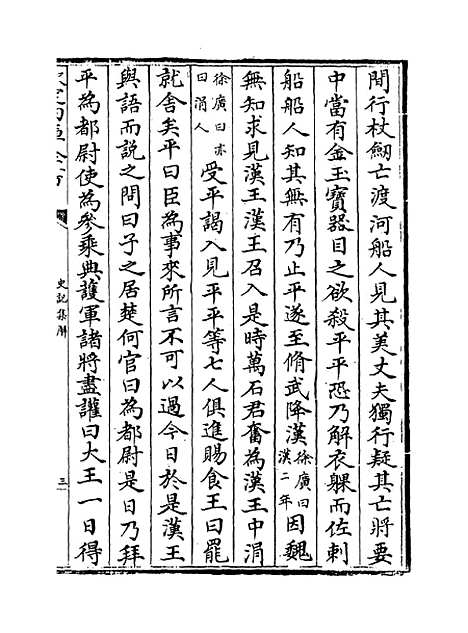 閒行杖劒亡渡河船人見其美丈夫獨行疑其亡將要
中當有金玉寶器目之欲殺平平恐乃解衣躶而佐刺
船船人知其無有乃止平遂至脩武降漢徐廣曰漢二年因魏
無知求見漢王漢王召入是時萬石君奮為漢王中涓
徐廣曰亦曰涓人受平謁入見平平等七人俱進賜食王曰罷
就舍矣平曰臣為事來所言不可以過今日於是漢王
與語而說之問曰子之居楚何官曰為都尉是日乃拜
平為都尉使為參乘典護軍諸將盡讙曰大王一日得
史記集解
三